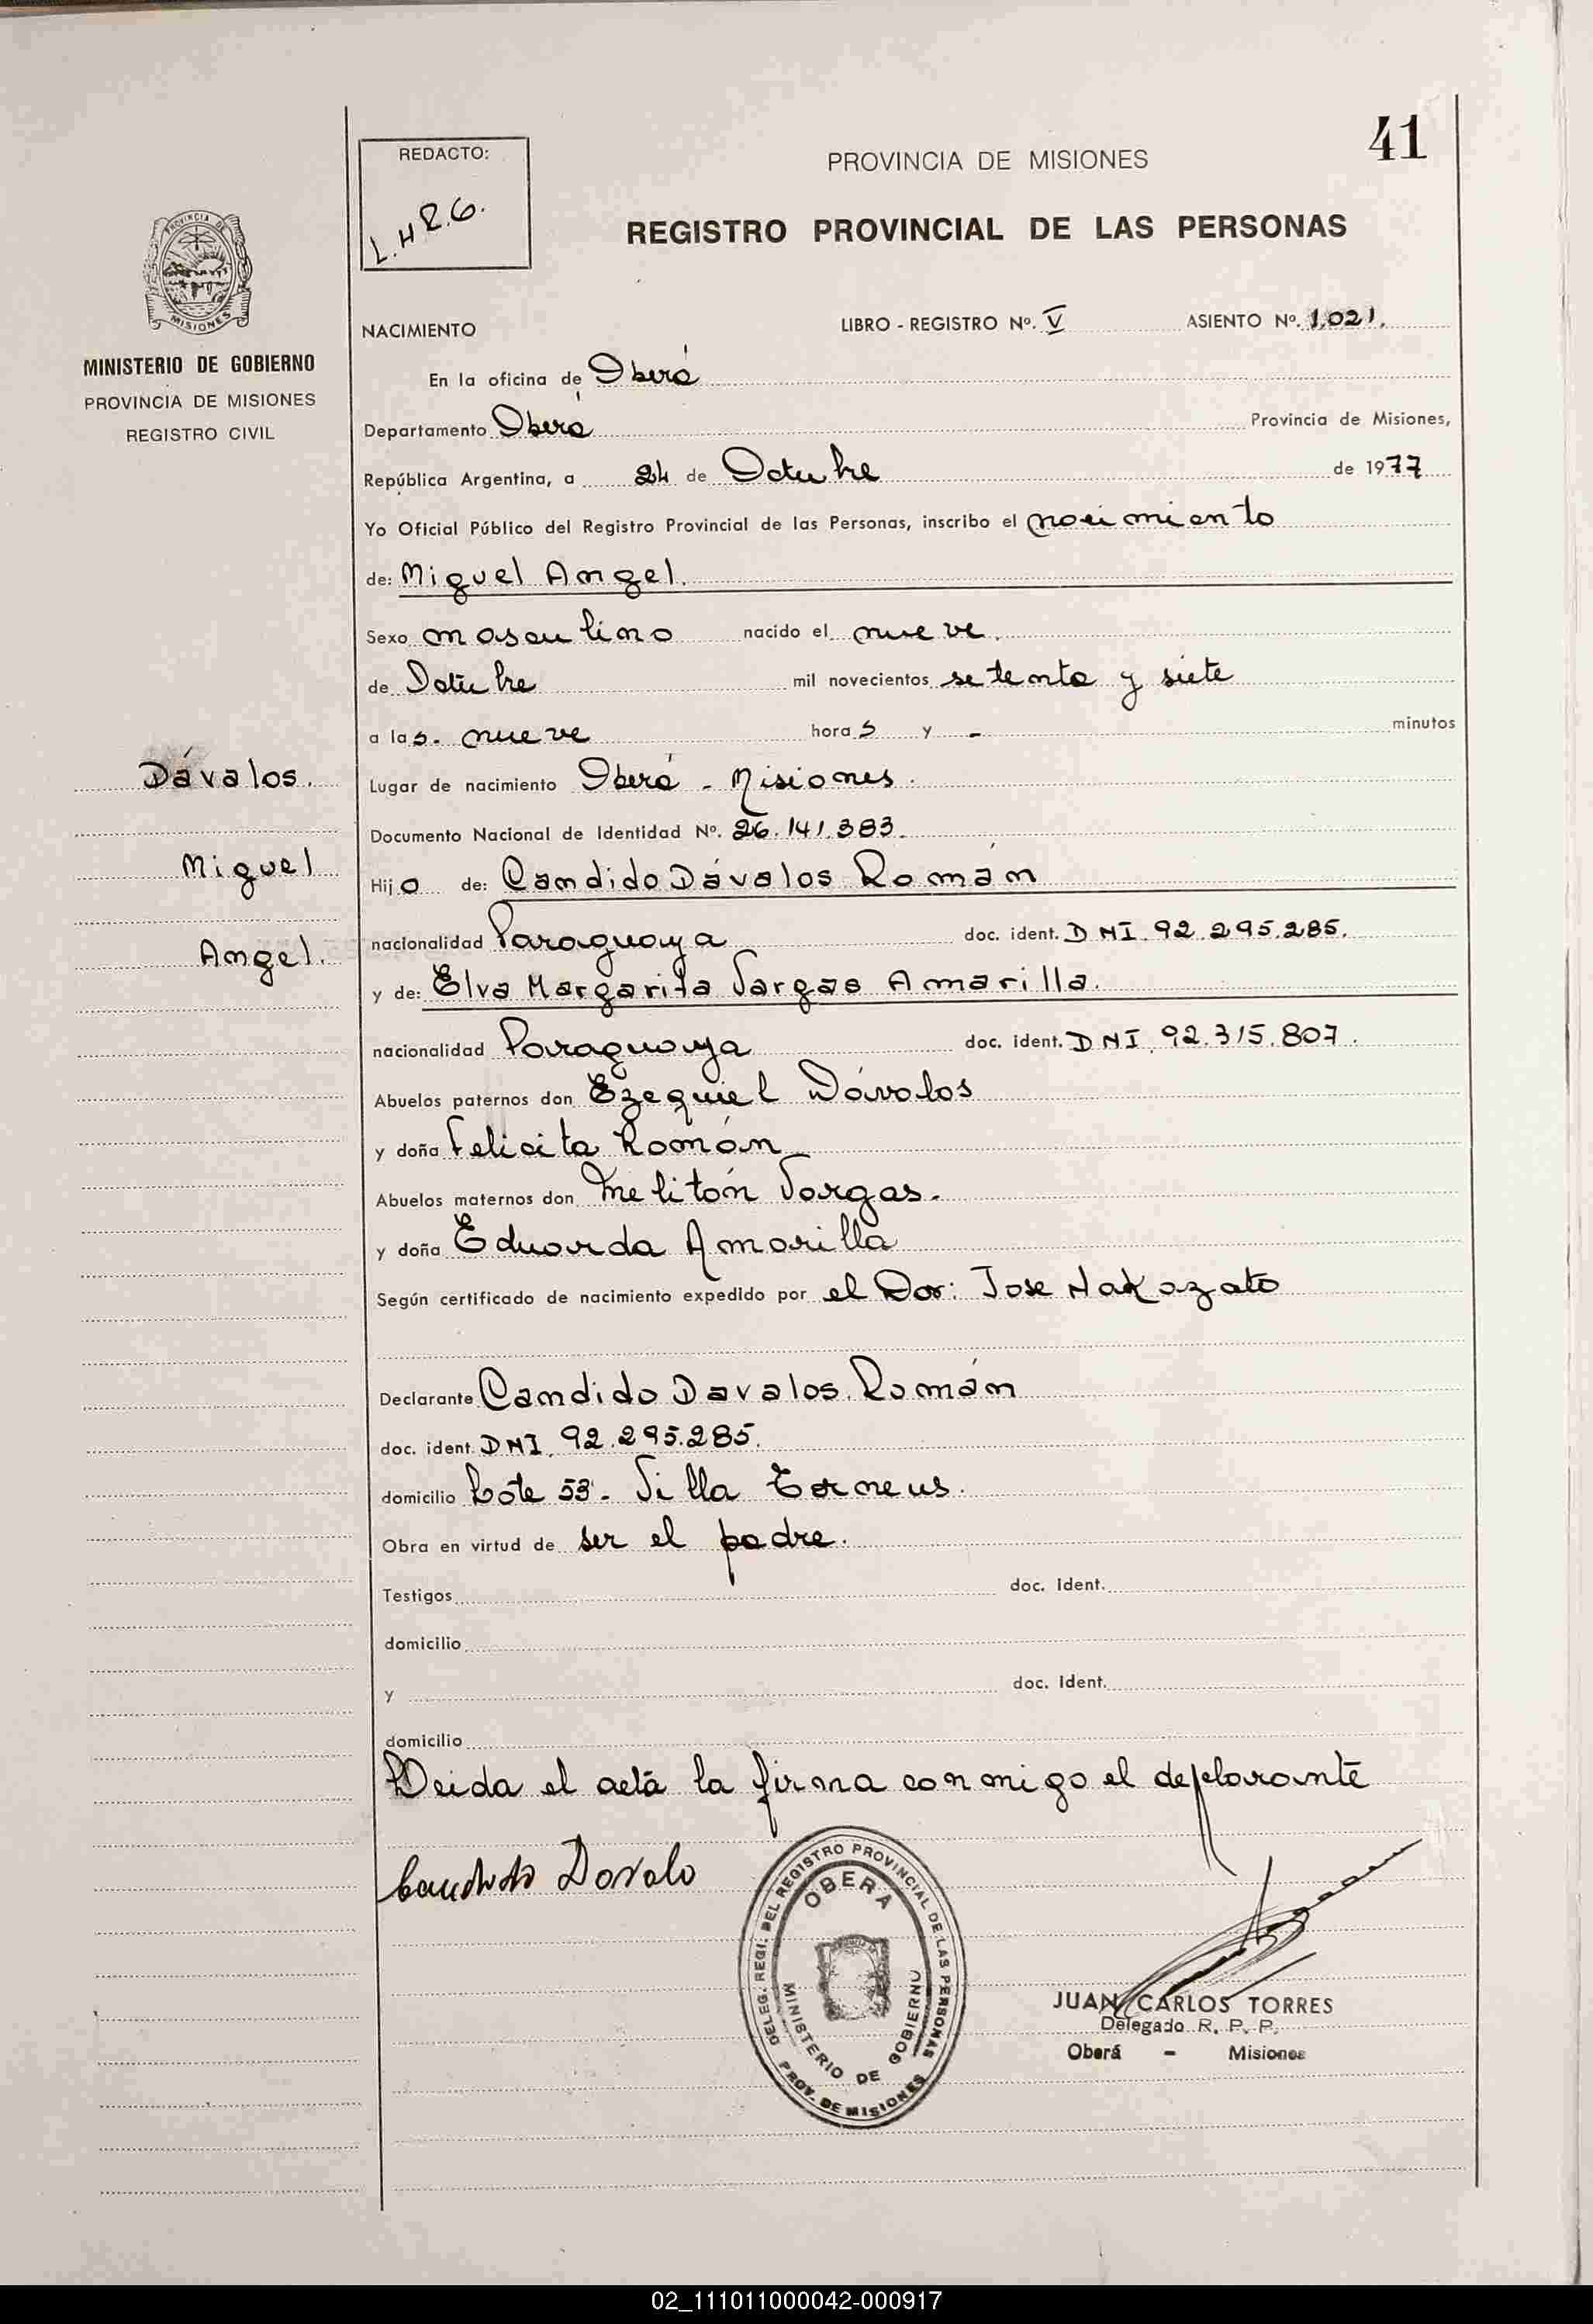 41
REDACTO:
L.H.R.G.
PROVINCIA DE MISIONES
REGISTRO PROVINCIAL DE LAS PERSONAS
PROVINCIA DE
MISIONES
MINISTERIO DE GOBIERNO
PROVINCIA DE MISIONES
REGISTRO CIVIL
NACIMIENTO LIBRO - REGISTRO Nº. V ASIENTO Nº. 1.021.
En la oficina de Oberá
Departamento Oberá Provincia de Misiones,
República Argentina, a 24 de Octubre de 1977
Yo Oficial Público del Registro Provincial de las Personas, inscribo el nacimiento
de: Miguel Angel.
Sexo masculino nacido el nueve.
de Octubre mil novecientos setenta y siete
a las. nueve horas y - minutos
Dávalos.
Miguel
Angel.
Lugar de nacimiento Oberá - Misiones.
Documento Nacional de Identidad Nº. 26.141.383.
Hijo de: Candido Dávalos Román
nacionalidad Paraguaya doc. ident. DNI. 92.295.285.
y de: Elva Margarita Vargas Amarilla.
nacionalidad Paraguaya doc. ident. DNI. 92.315.807.
Abuelos paternos don Ezequiel Dávalos
y doña Felicita Román
Abuelos maternos don Melitón Vargas.
y doña Eduarda Amarilla
Según certificado de nacimiento expedido por el Dor: Jose Nakazato
Declarante Candido Davalos Román
doc. ident. DNI. 92.295.285.
domicilio Lote 53- Villa
Obra en virtud de ser el padre.
Testigos doc. ident.
domicilio
y doc. ident.
domicilio
Leida el acta la firma conmigo el declarante
Candido Davalo
DELEG. REGI. DEL REGISTRO PROVINCIAL DE LAS PERSONAS
OBERA
MINISTERIO DE GOBIERNO
PROV. DE MISIONES
JUAN CARLOS TORRES
Delegado R. P. P.
Oberá - Misiones
02_111011000042-000917